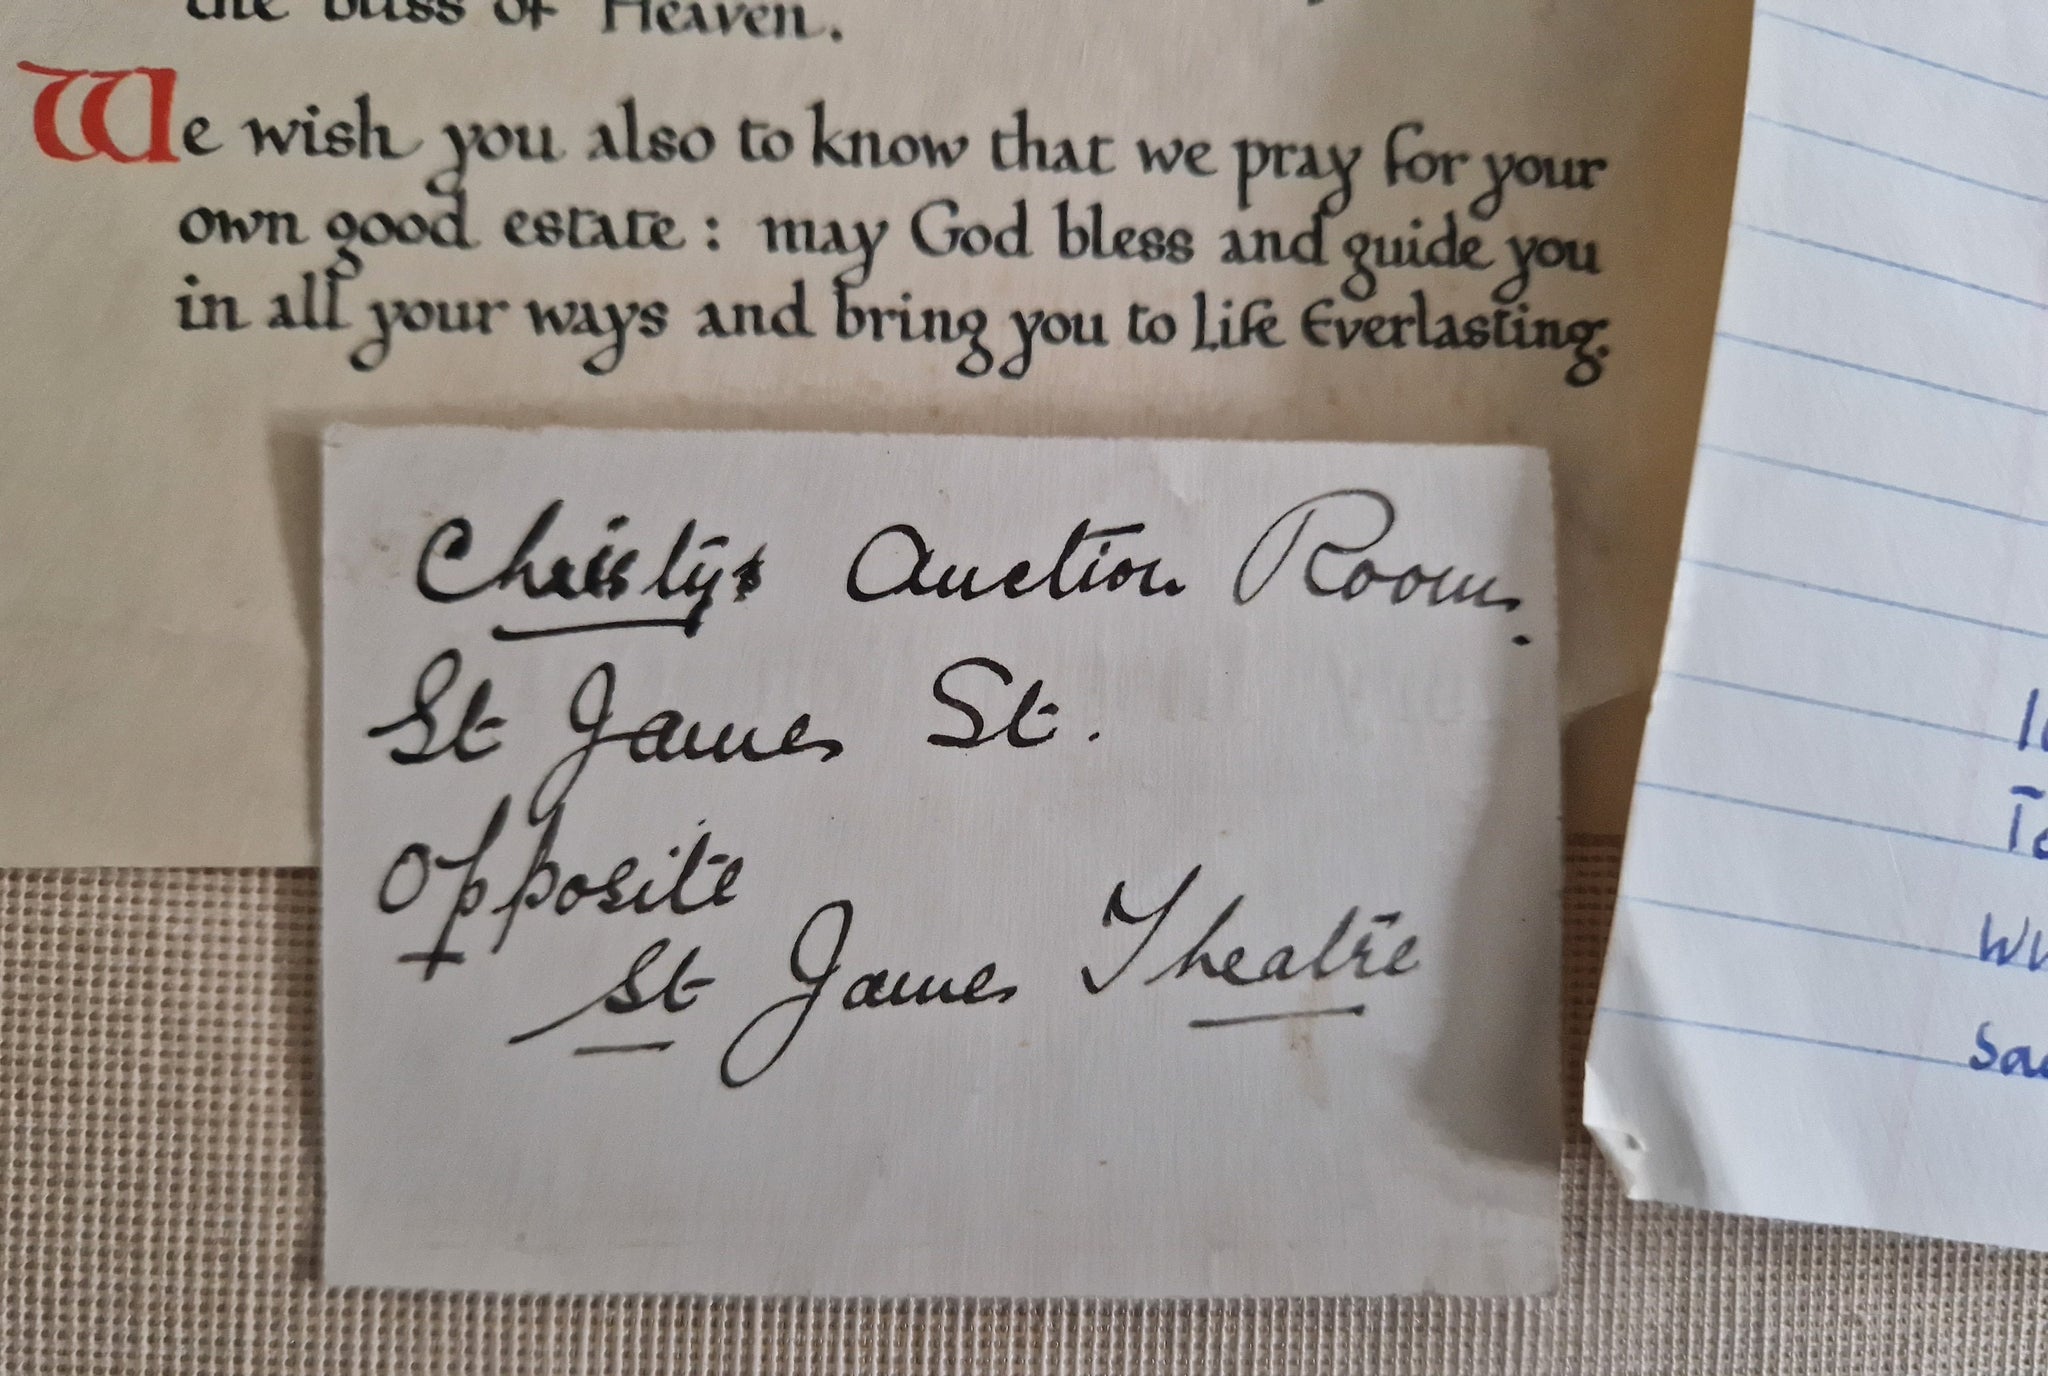 the bliss of Heaven.
We wish you also to know that we pray for your
own good estate : may God bless and guide you
in all your ways and bring you to Life Everlasting.
Christys Auction Rooms
St James St.
Opposite
St James Theatre